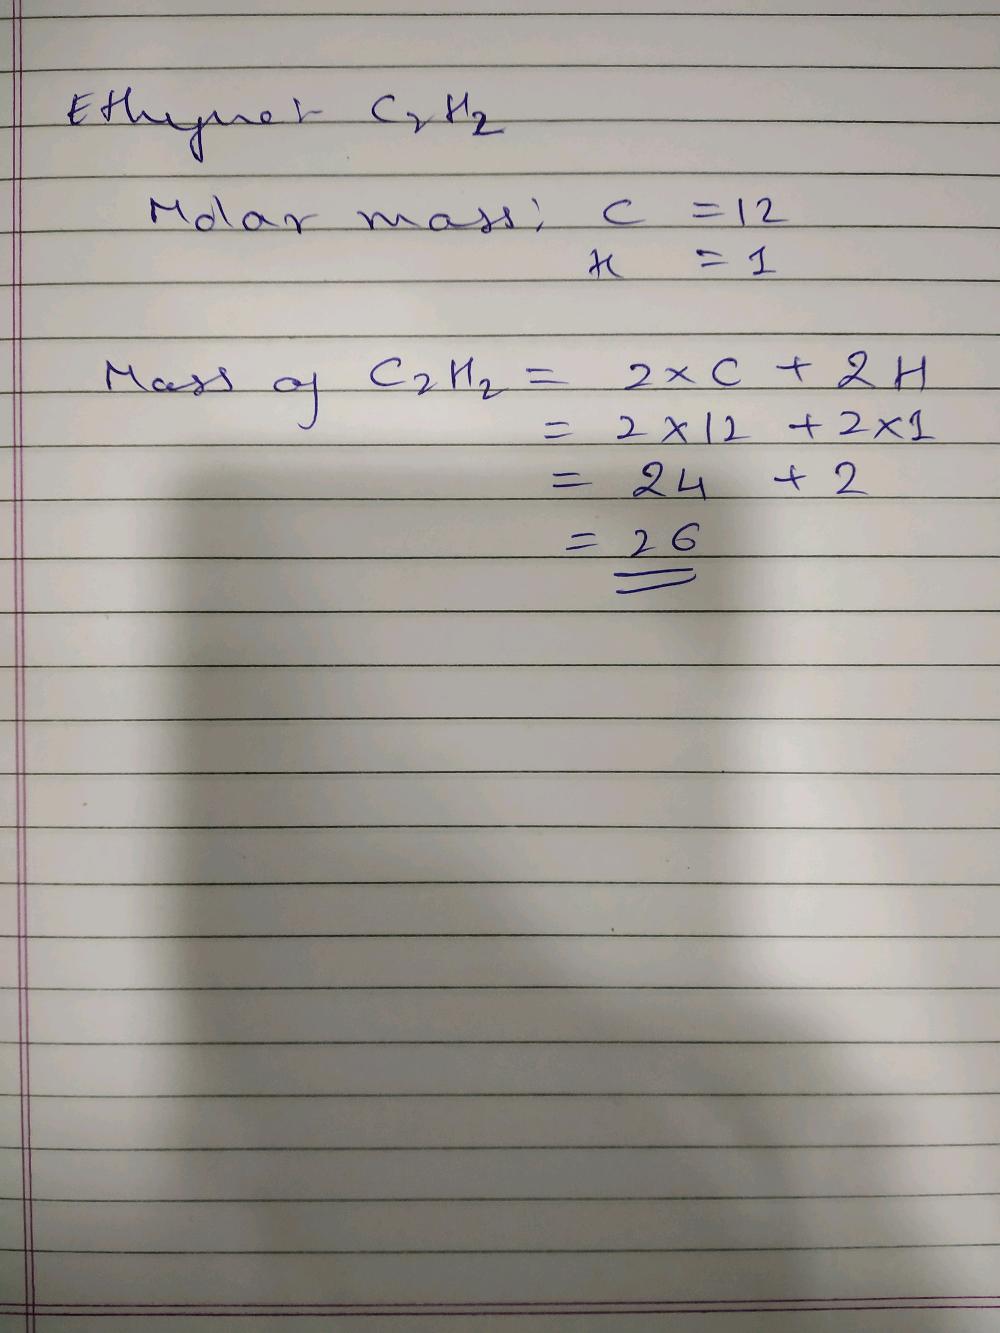 Ethyne:- C₂H₂
Molar mass: C = 12
H = 1
Mass of C₂H₂ = 2 × C + 2 H
= 2 × 12 + 2 × 1
= 24 + 2
= 26